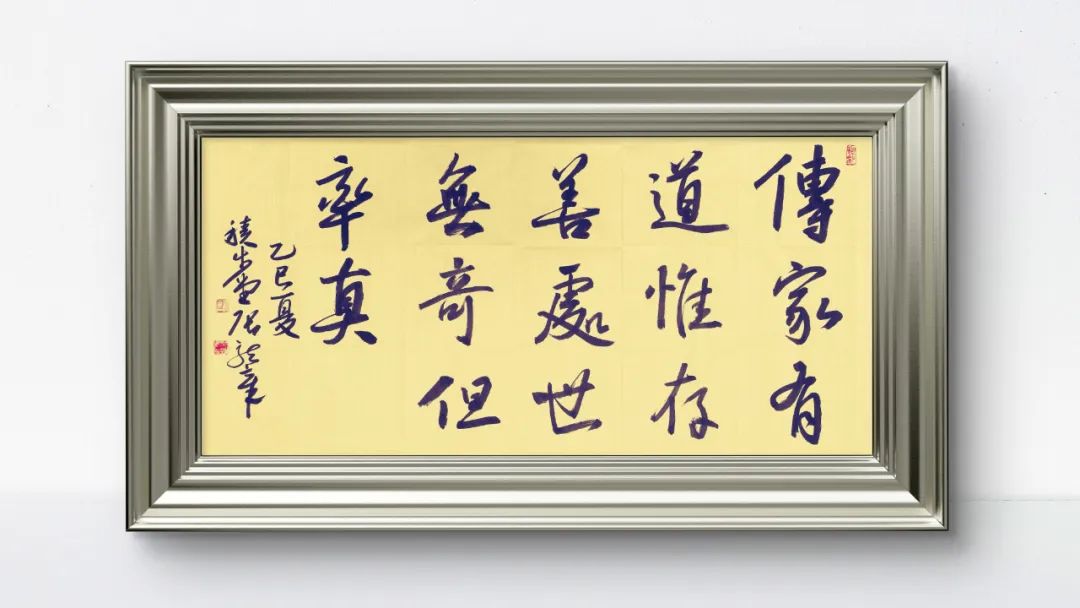 傳家有
道惟存
善處世
無奇但
率真
乙巳夏
積步堂